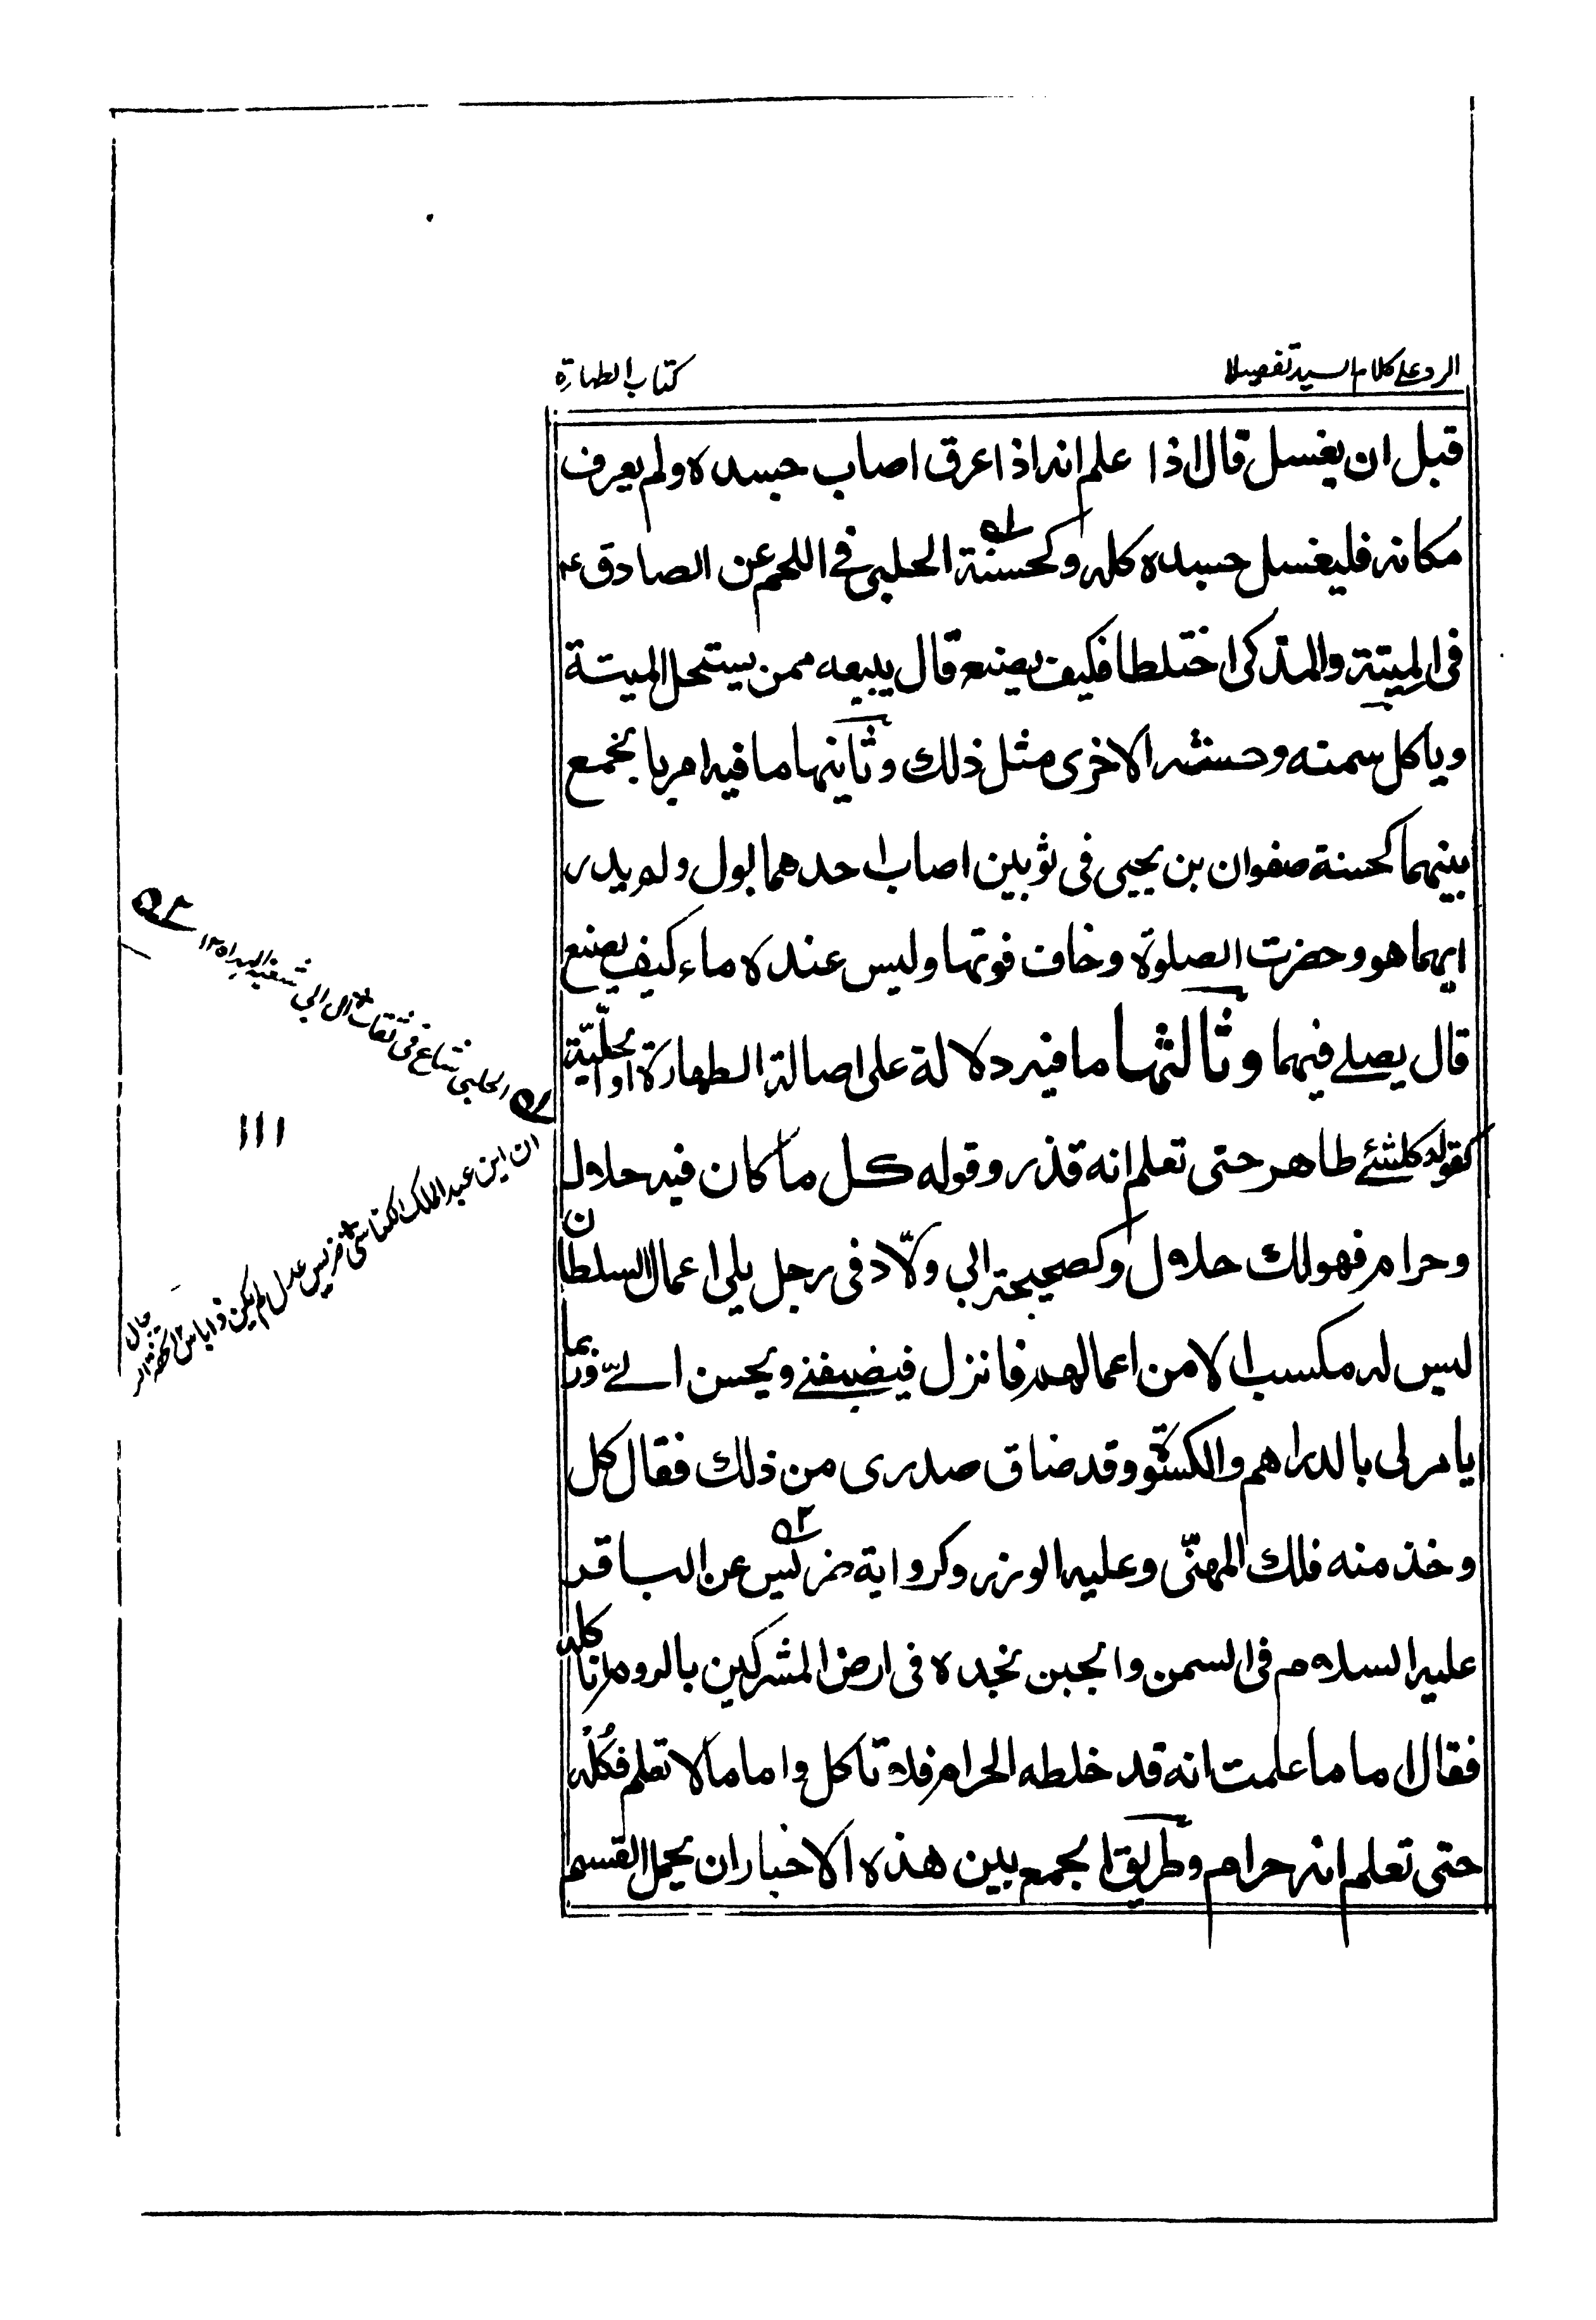 الرد على كلام السيد تفصيلا
كتاب الطهارة
قبل ان يغسل قال اذا علم انه اذا عرق اصاب جسده ولم يعرف
مكانه فليغسل جسده كله وكحسنة الحلبي في اللحم عن الصادق ع
في الميتة والمذكى اختلطا فكيف يصنع قال يبيعه ممن يستحل الميتة
وياكل سمنه وحسنته الاخرى مثل ذلك وثانيها ما فيه امر بالجمع
بينهما كحسنة صفوان بن يحيى في ثوبين اصاب احدهما بول ولم يدر
ايهما هو وحضرت الصلوة وخاف فوتها وليس عنده ماء كيف يصنع
قال يصلي فيهما وثالثها ما فيه دلالة على اصالة الطهارة او الحلية
كقوله كلشئ طاهر حتى تعلم انه قذر وقوله كل ما كان فيه حلال
وحرام فهو لك حلال وكصحيحة ابي ولّاد في رجل يلي اعمال السلطان
ليس له مكسب الا من اعمالهم فانزل فيضيفني ويحسن اليّ وربما
يامر لي بالدراهم والكسوة وقد ضاق صدري من ذلك فقال كل
وخذ منه فلك المهنّى وعليه الوزر وكرواية ضريس عن الباقر
عليه السلام في السمن والجبن نجده في ارض المشركين بالروم اناكله
فقال اما ما علمت انه قد خلطه الحرام فلا تاكل واما ما لا تعلم فكُلْه
حتى تعلم انه حرام وطريق الجمع بين هذه الاخبار ان يحمل القسم
الحلبي شاع في ثقات
ان ابن عبد الملك الكناسي ضريس عدل لم يكن ذا باس
١١١